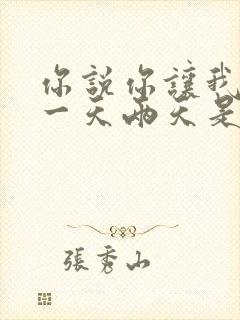 你說你讓我
一天兩天是
張秀山